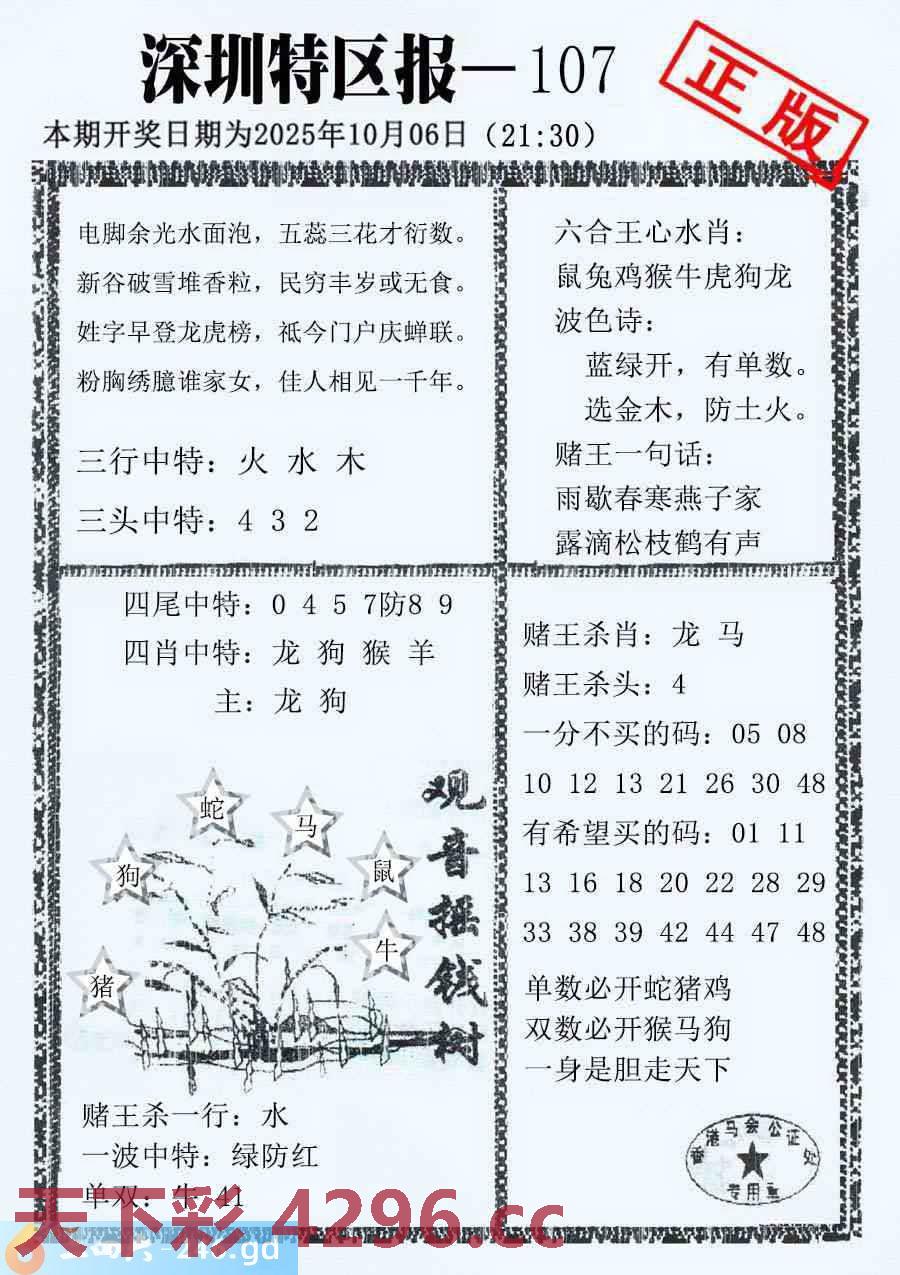 深圳特区报—107
正版
本期开奖日期为2025年10月06日（21:30）
电脚余光水面泡，五蕊三花才衍数。
新谷破雪堆香粒，民穷丰岁或无食。
姓字早登龙虎榜，祗今门户庆蝉联。
粉胸绣臆谁家女，佳人相见一千年。
三行中特：火 水 木
三头中特：4 3 2
六合王心水肖：
鼠兔鸡猴牛虎狗龙
波色诗：
蓝绿开，有单数。
选金木，防土火。
赌王一句话：
雨歇春寒燕子家
露滴松枝鹤有声
四尾中特：0 4 5 7防8 9
四肖中特：龙 狗 猴 羊
主：龙 狗
观音摇钱树
蛇
马
狗
鼠
牛
猪
赌王杀一行：水
一波中特：绿防红
单双：牛 41
赌王杀肖：龙 马
赌王杀头：4
一分不买的码：05 08
10 12 13 21 26 30 48
有希望买的码：01 11
13 16 18 20 22 28 29
33 38 39 42 44 47 48
单数必开蛇猪鸡
双数必开猴马狗
一身是胆走天下
香港马会公证处
专用章
天下彩 4296.cc